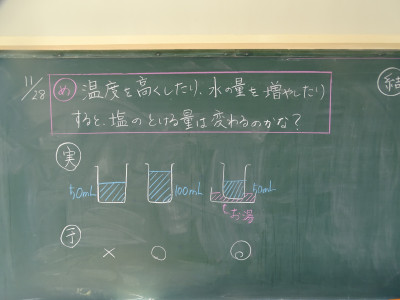 11/28
め 温度を高くしたり、水の量を増やしたり
すると、塩のとける量は変わるのかな?
実
50mL 100mL 50mL
お湯
予 × ○ ◎
結